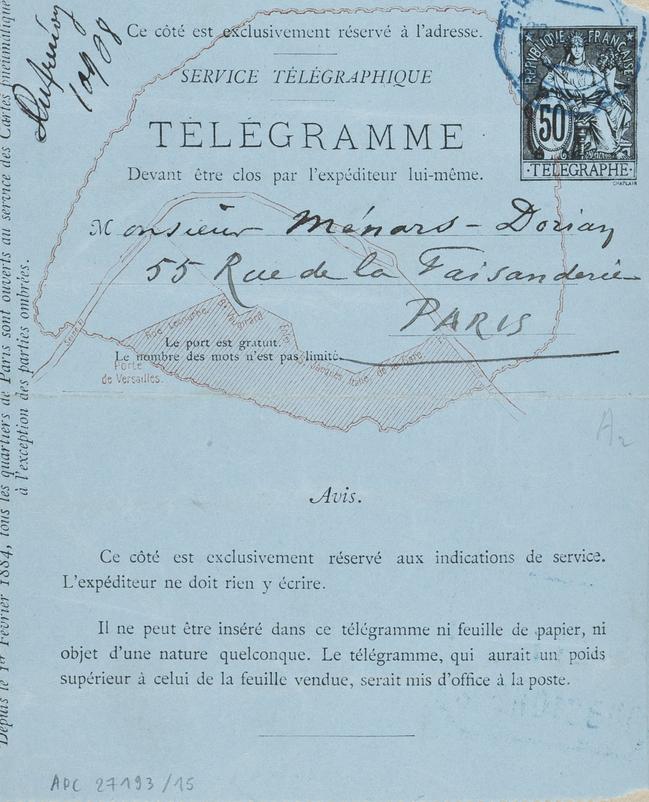 Ce côté est exclusivement réservé à l'adresse.
SERVICE TÉLÉGRAPHIQUE
TÉLÉGRAMME
Devant être clos par l'expéditeur lui-même.
RÉPUBLIQUE FRANÇAISE
50
TELEGRAPHE
CHAPLAIN
10908
Monsieur Ménars-Dorian
55 Rue de la Faisanderie
PARIS
Le port est gratuit.
Le nombre des mots n'est pas limité.
Porte
de Versailles.
Rue Lecourbe
Depuis le 1er Février 1884, tous les quartiers de Paris sont ouverts au service des Cartes pneumatiques
à l'exception des parties ombrées.
A2
Avis.
Ce côté est exclusivement réservé aux indications de service.
L'expéditeur ne doit rien y écrire.
Il ne peut être inséré dans ce télégramme ni feuille de papier, ni
objet d'une nature quelconque. Le télégramme, qui aurait un poids
supérieur à celui de la feuille vendue, serait mis d'office à la poste.
ADC 27193/15